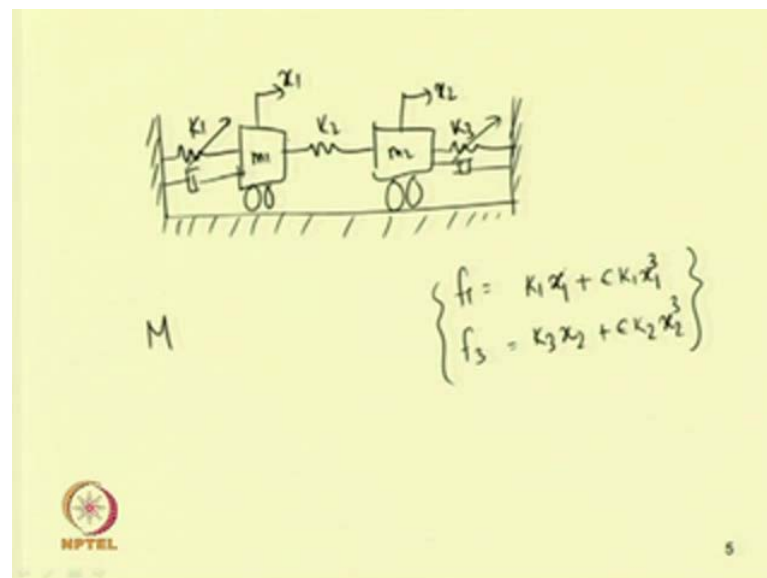 x1 x2
K1 K2 K3
m1 m2
f1 = K1x1 + ϵK1x1^3
f3 = K3x2 + ϵK2x2^3
M
NPTEL
5